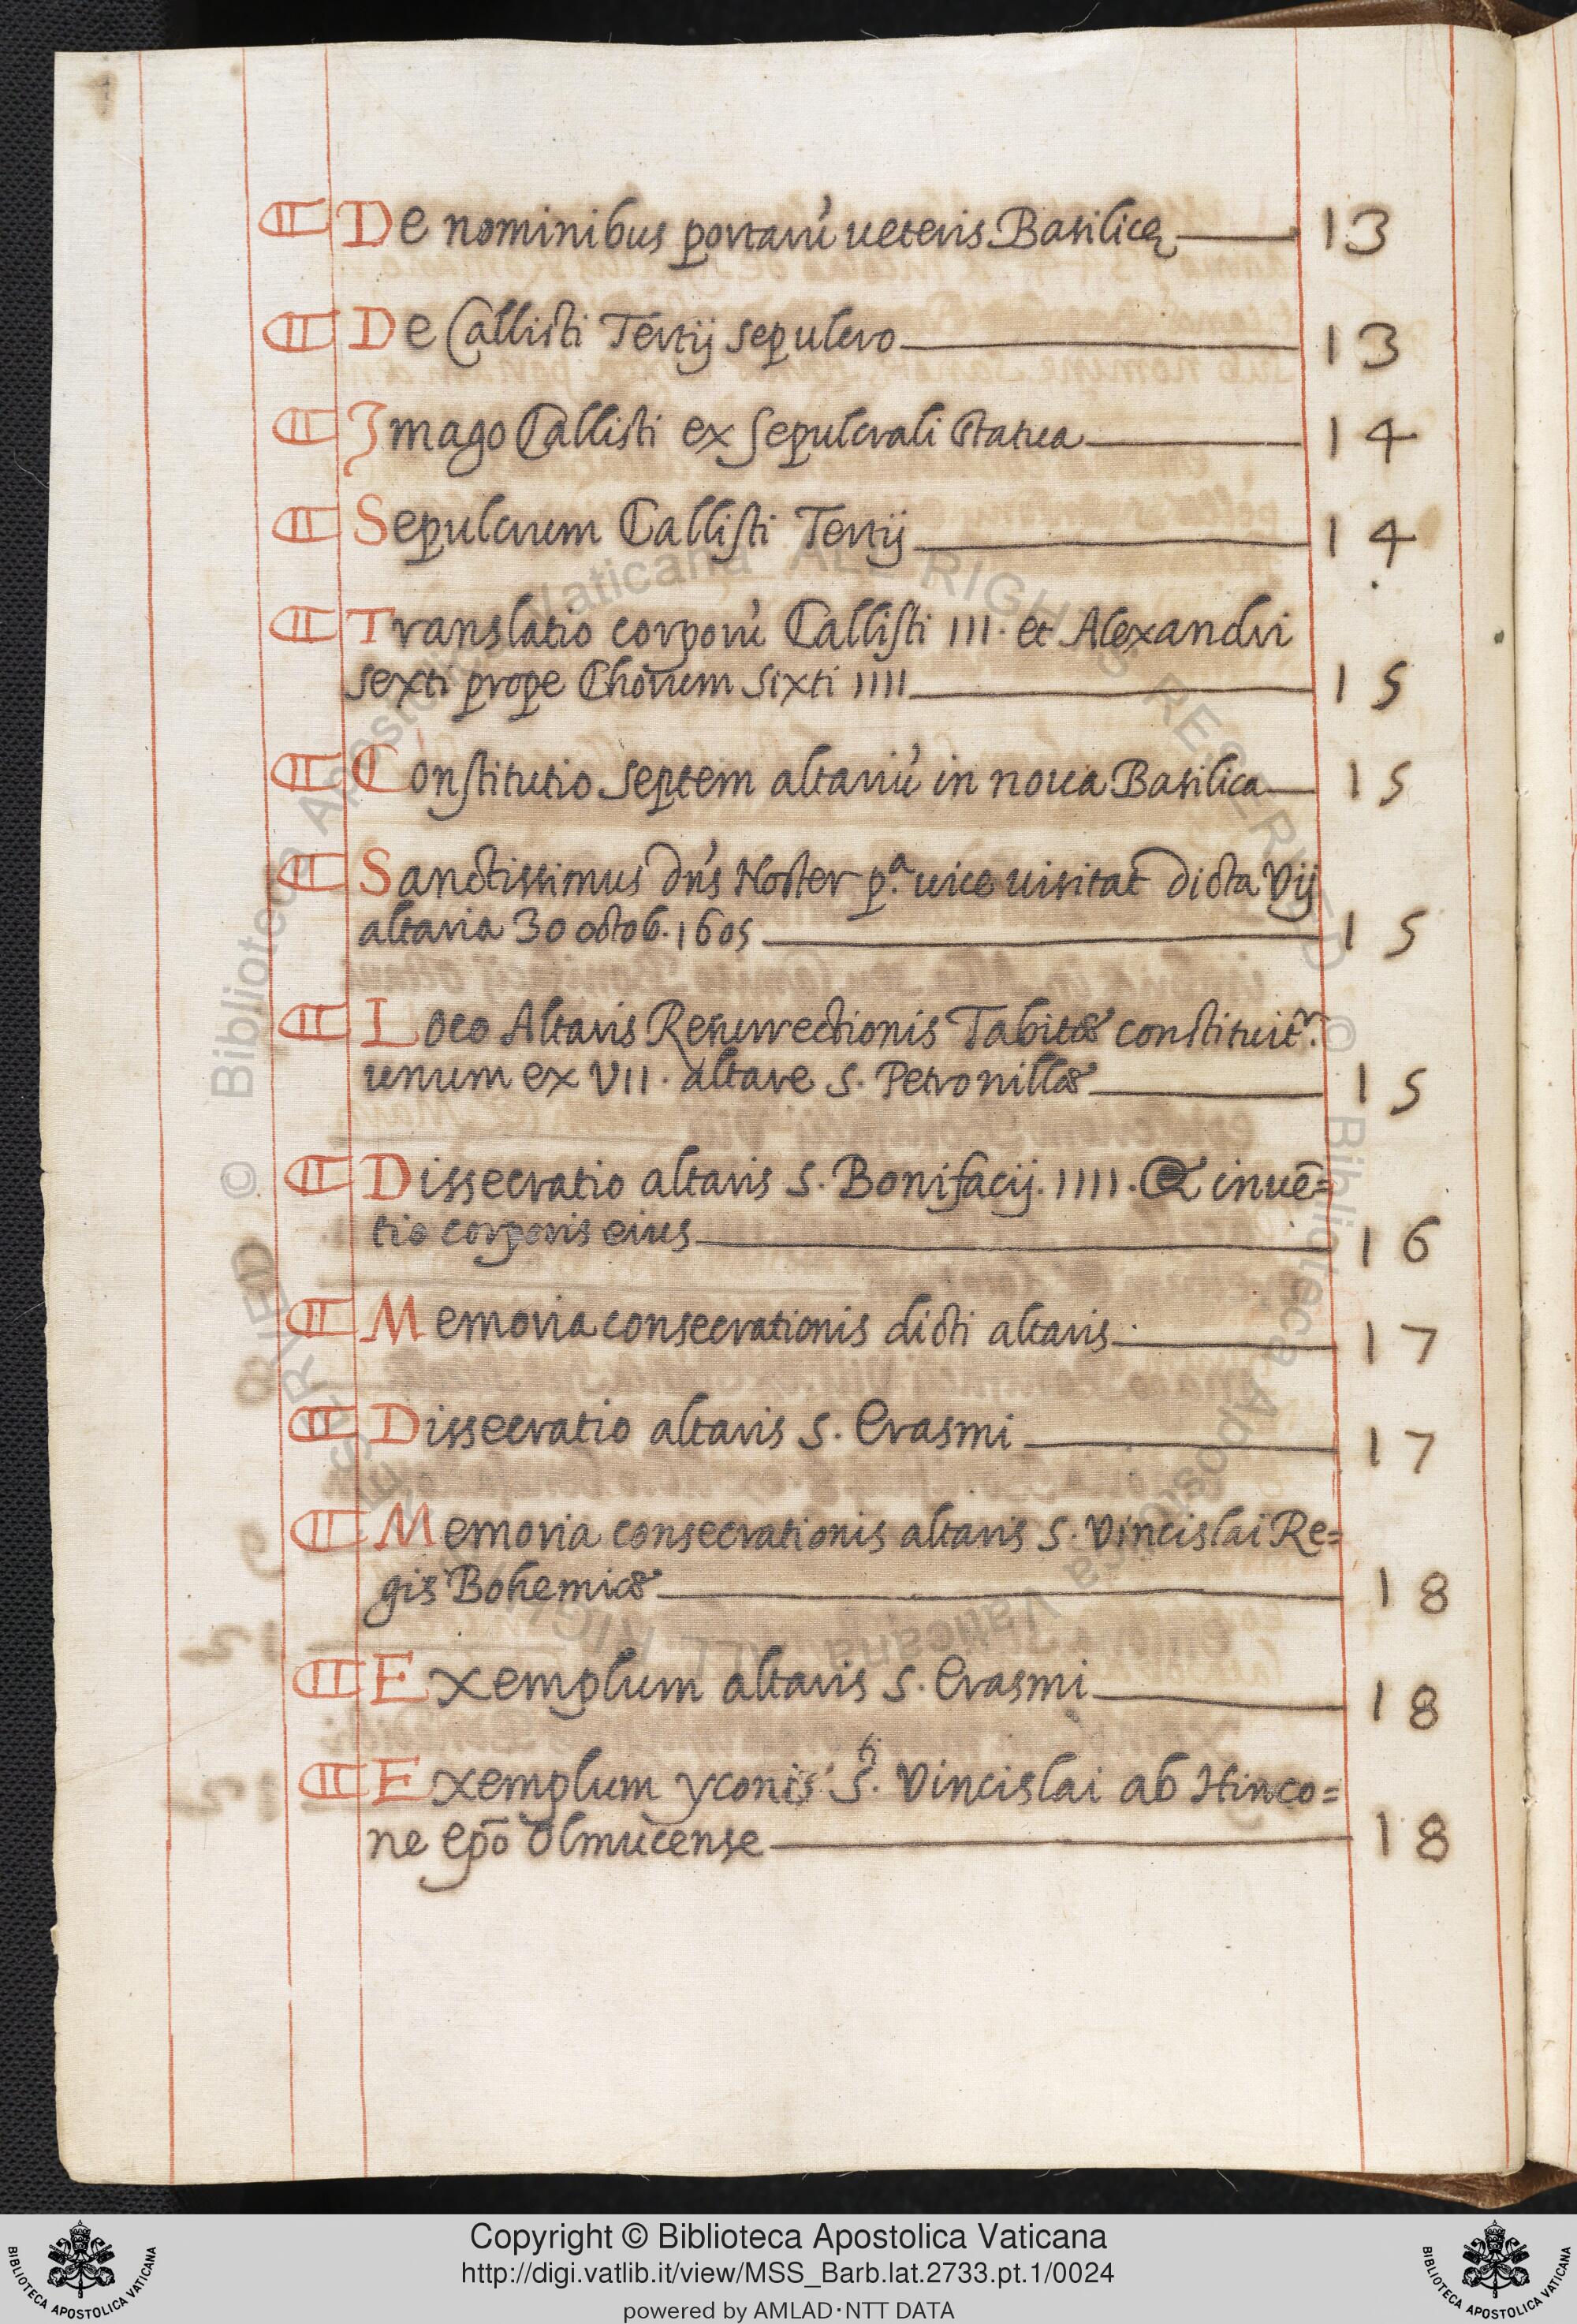 ¶ De nominibus portarũ ueteris Basilicę 13
¶ De Callisti Tertij sepulcro 13
¶ Imago Callisti ex sepulcrali statua 14
¶ Sepulcrum Callisti Tertij 14
¶ Translatio corporũ Callisti III. et Alexandri
sexti prope Chorum Sixti IIII 15
¶ Constitutio septem altariũ in noua Basilica 15
¶ Sanctissimus dñs Noster p.ª uice uisitat dicta Vij
altaria 30 octob. 1605 15
¶ Loco Altaris Resurrectionis Tabitæ constituit.r
unum ex VII. altare S. Petronillæ 15
¶ Dissecratio altaris S. Bonifacij. IIII. & inuē=
tio corporis eius 16
¶ Memoria consecrationis dicti altaris 17
¶ Dissecratio altaris S. Erasmi 17
¶ Memoria consecrationis altaris S. Vincislai Re=
gis Bohemiæ 18
¶ Exemplum altaris S. Erasmi 18
¶ Exemplum yconis S.ti Vincislai ab Hinco=
ne epō Olmucense 18
© Biblioteca Apostolica Vaticana ALL RIGHTS RESERVED © Biblioteca Apostolica Vaticana ALL RIGHTS RESERVED
Copyright © Biblioteca Apostolica Vaticana
http://digi.vatlib.it/view/MSS_Barb.lat.2733.pt.1/0024
powered by AMLAD·NTT DATA
BIBLIOTECA APOSTOLICA VATICANA
BIBLIOTECA APOSTOLICA VATICANA